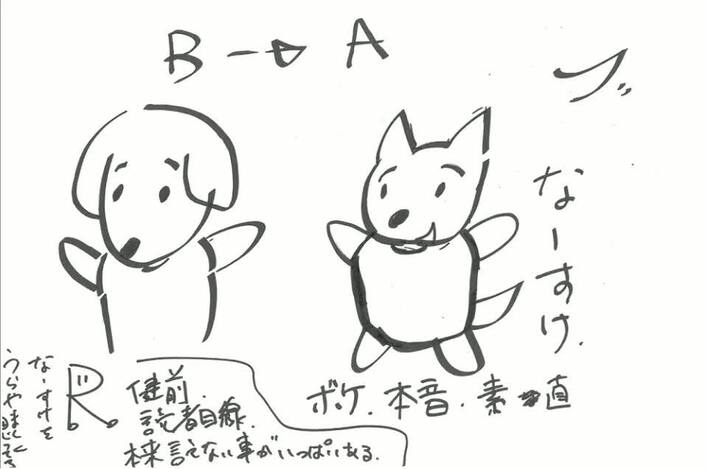 B → A
ブ
なーすけ.
ボケ.本音.素直
R.
健前.
読者目線.
本来言えない事がいっぱいある.
なーすけを
うらやましく思ってる